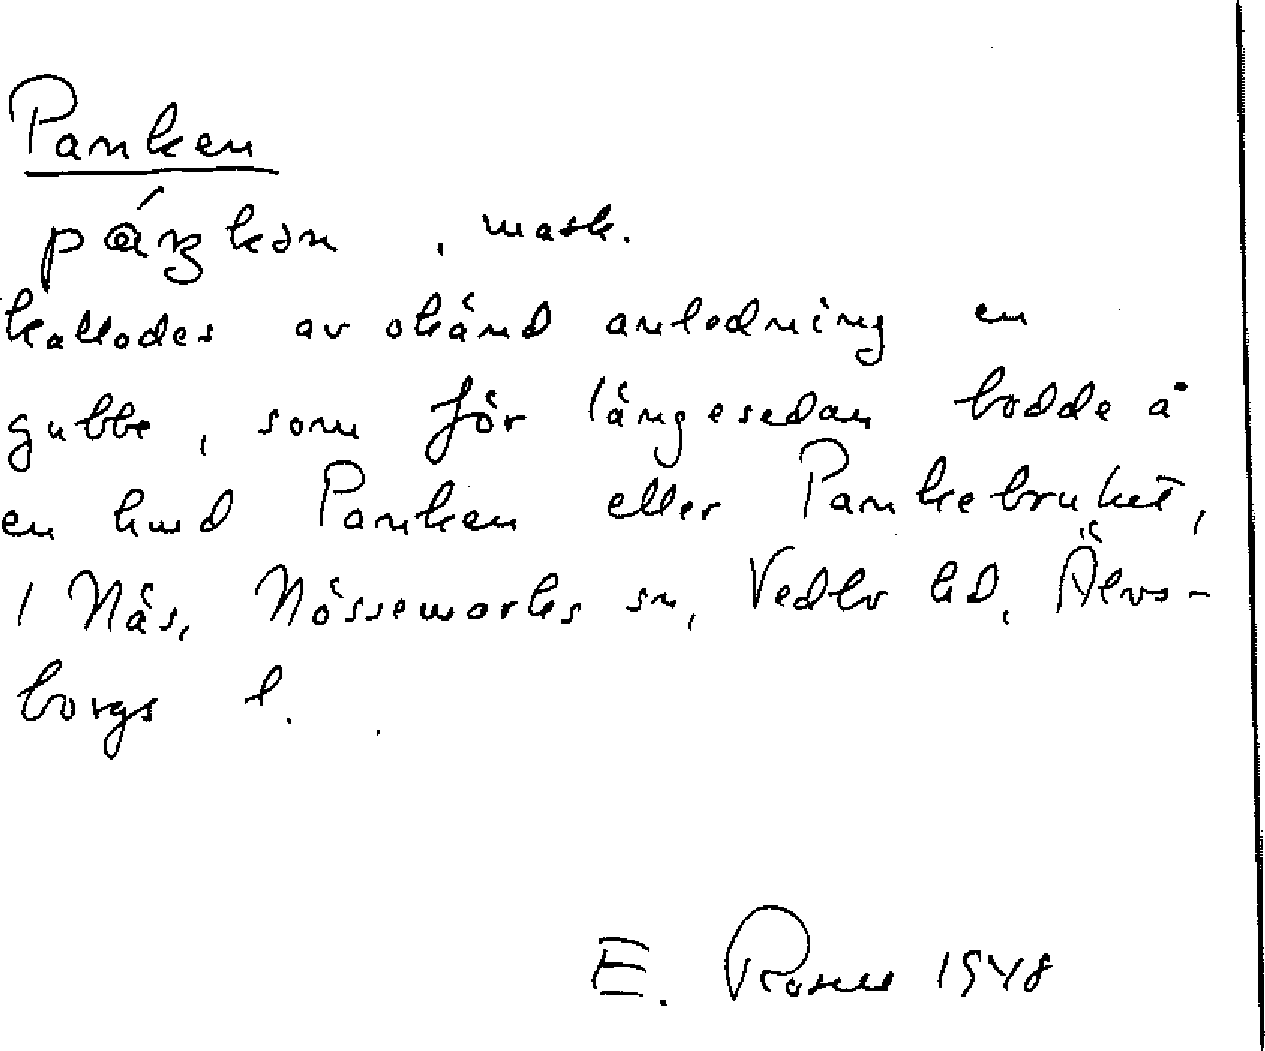 Panken
páŋkən, mask.
kallades av okänd anledning en
gubbe, som för längesedan bodde å
en lund Panken eller Pankebruket,
i Näs, Nössemarks sn, Vedbo hd, Älvs-
borgs l.
E. Rosell 1948